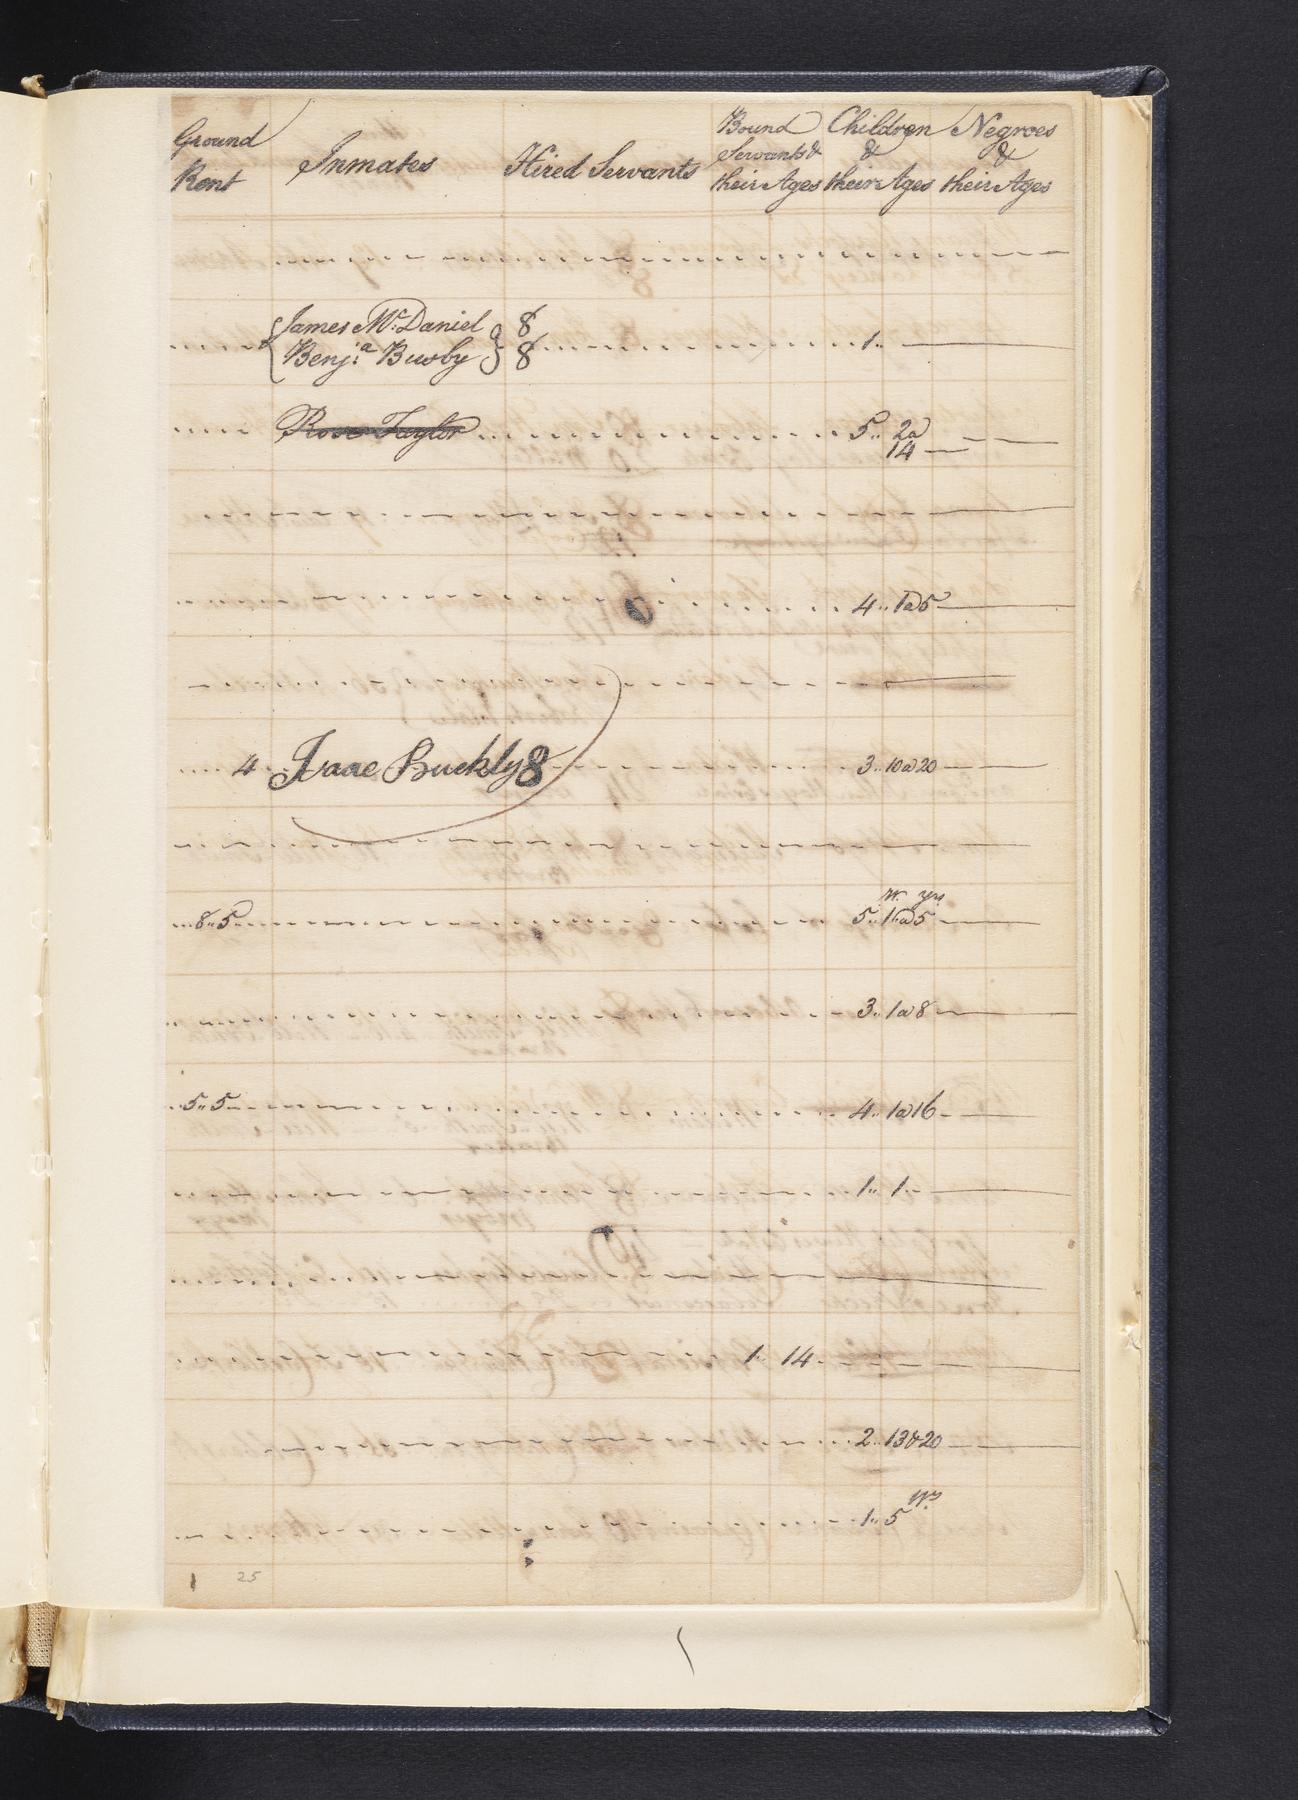 Ground Rent | Inmates | Hired Servants | Bound Servants & their Ages | Children & their Ages | Negroes & their Ages
James McDaniel 8
Benja Busby 8 1
Rose Taylor 5 2 a 14
4 1 a 5
4 Isaac Buckly 8 3 10 a 20
W. yrs
8 5 5 1 a 5
3 1 a 8
5 5 4 1 a 16
1 1
1 14
2 13 & 20
1 5 Ws
1 25